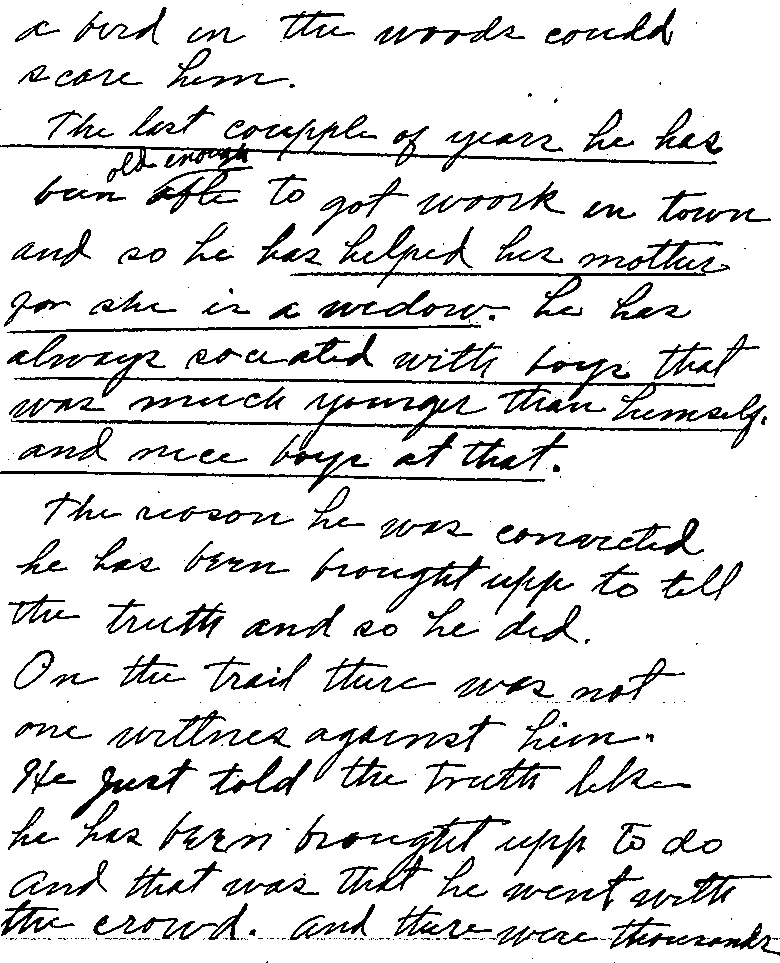 a bird in the woods could
scare him.
The last coupple of years he has
old enough
been able to got woork in town
and so he has helped his mother
for she is a widow. he has
always sociated with boys that
was much younger than himself.
and nice boys at that.
The reason he was convicted
he has been brought upp to tell
the truth and so he did.
On the trail there was not
one wittnes against him.
He just told the truth like
he has been brought upp to do
and that was that he went with
the crowd. and there were thousands